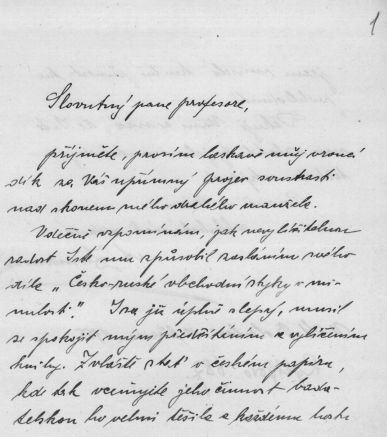 1
Slovutný pane profesore,
přijměte, prosím laskavě můj vroucí
dík za Váš upřímný projev soustrasti
nad skonem mého drahého manžela.
Vděčně vzpomínám, jak nevylíčitelnou
radost jste mu způsobil zasláním svého
díla „Česko-ruské obchodní styky v mi-
nulosti." Jsa již úplně slepý, musil
se spokojit mým předčítáním a vylíčením
knihy. Zvláště stať o českém papíru,
kde tak oceňujete jeho činnost bada-
telskou ho velmi těšila a každému